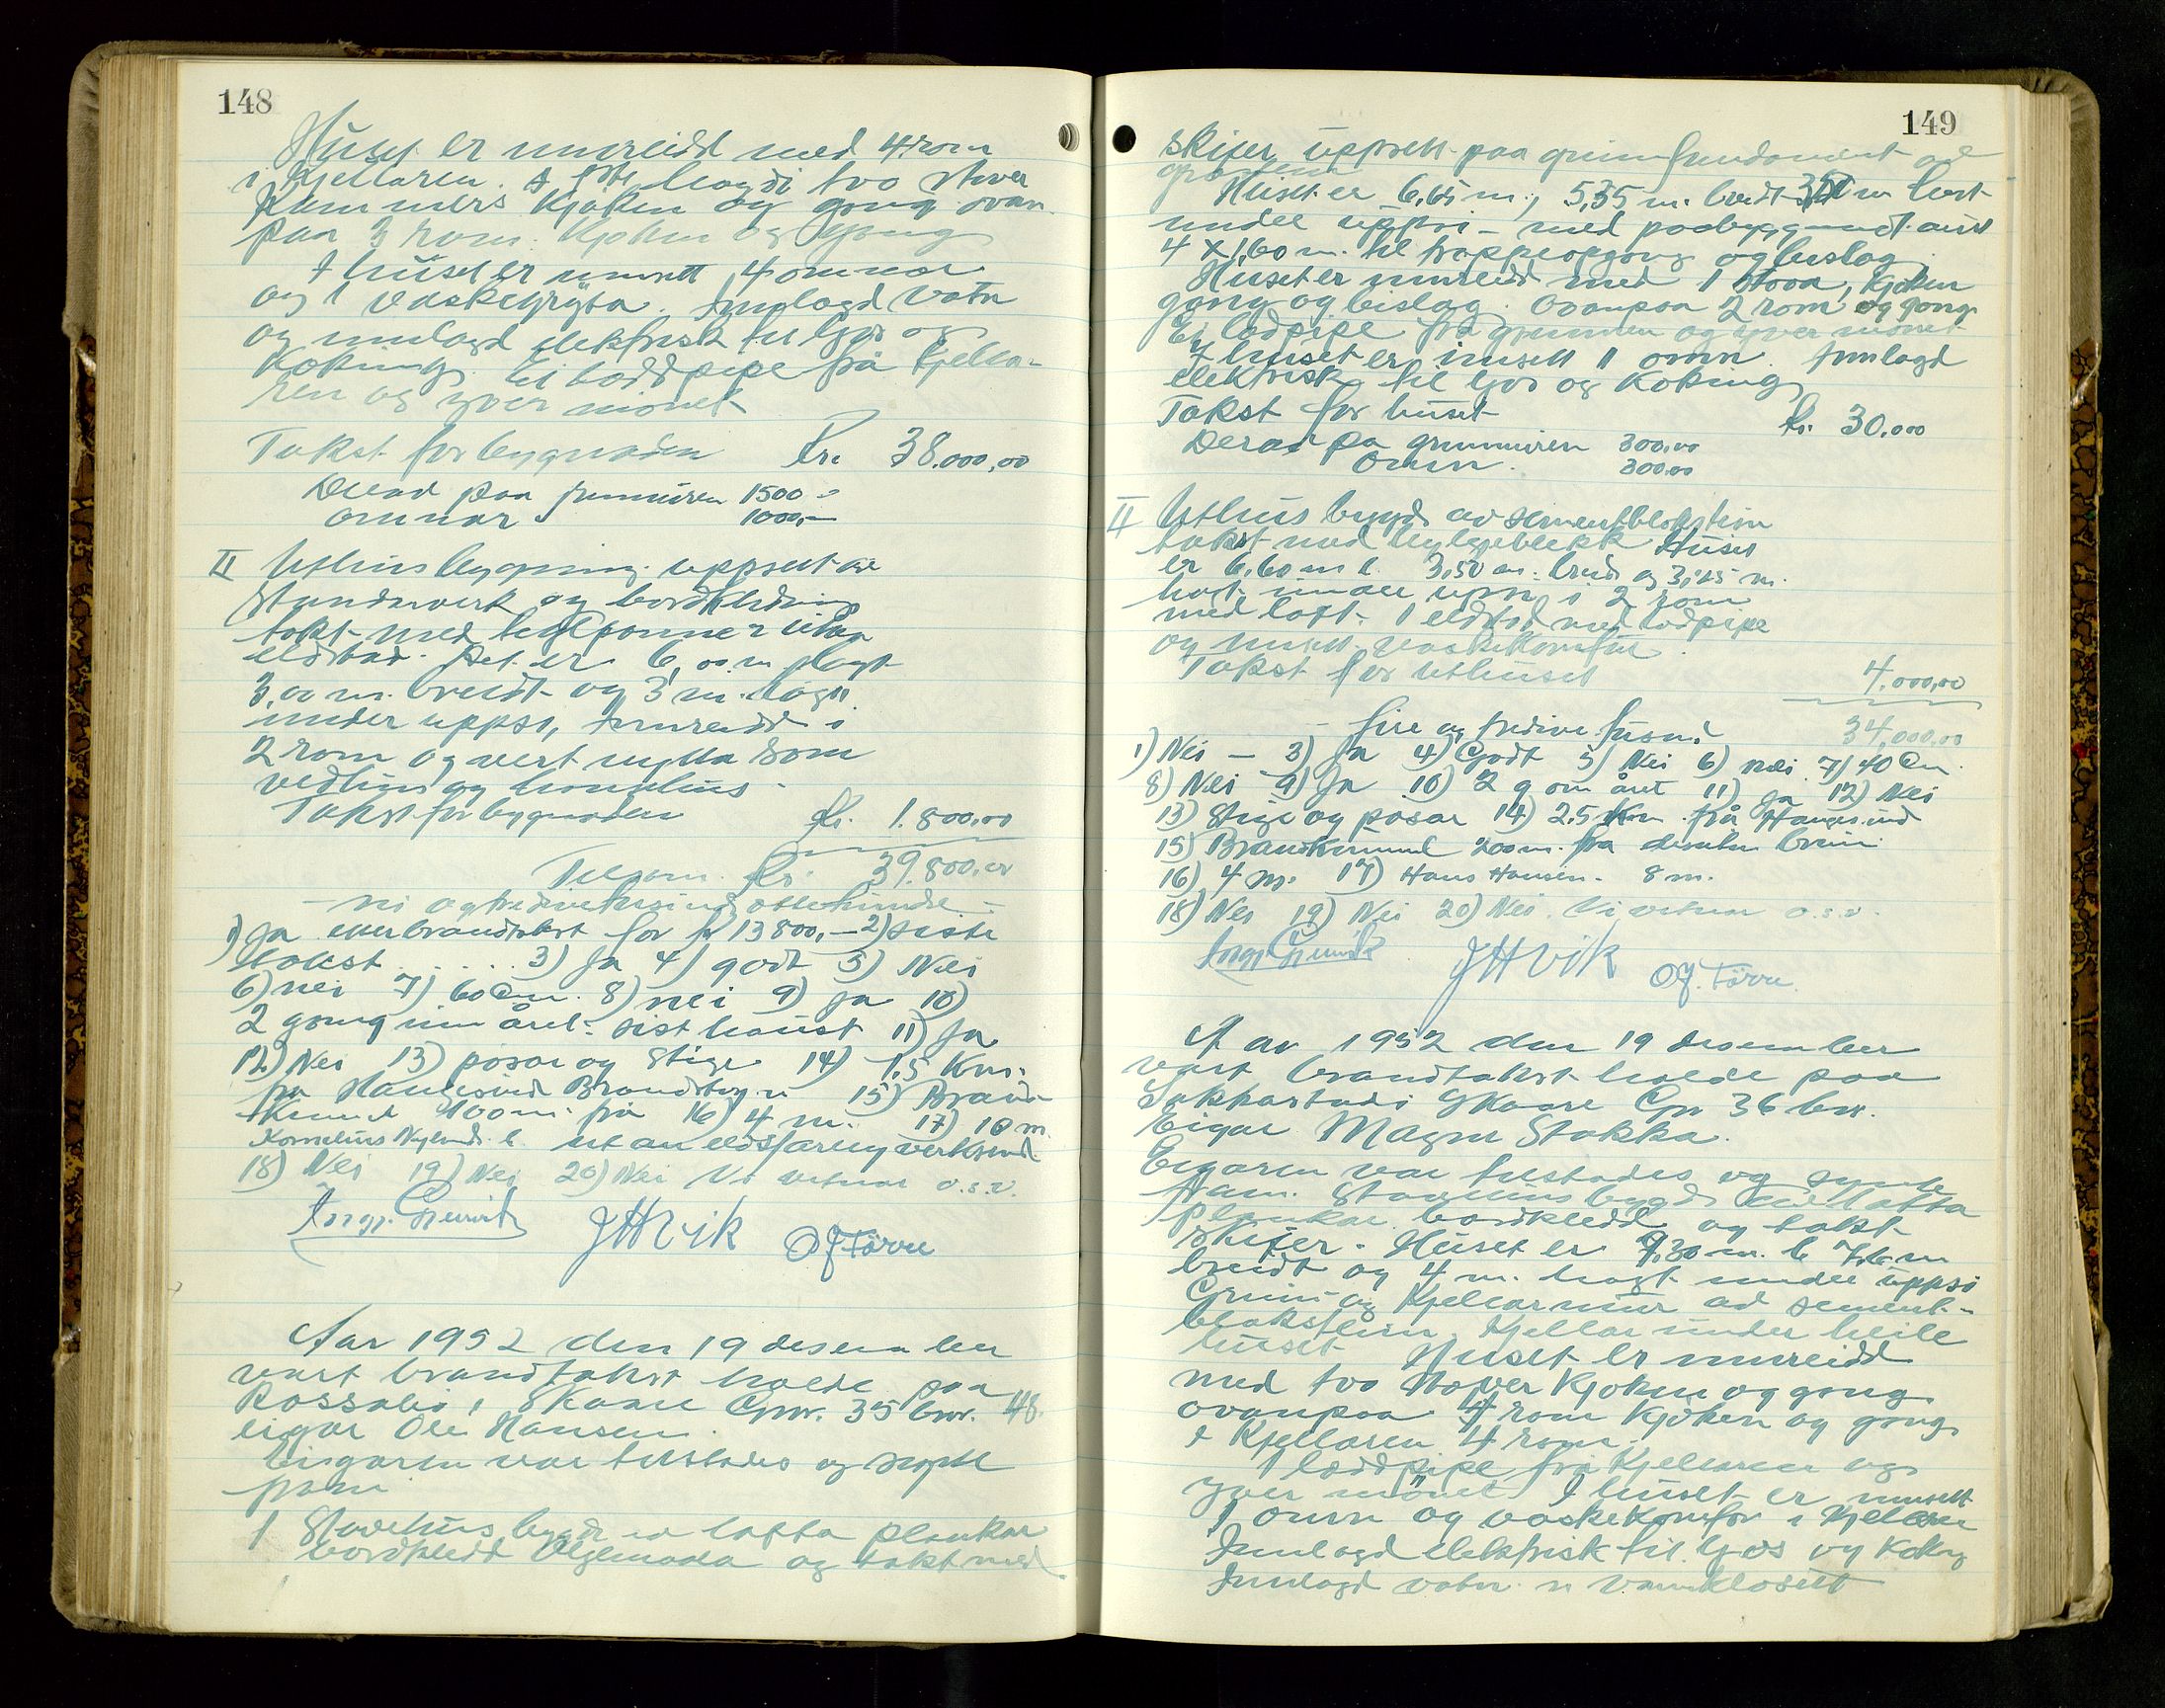 148
Huset er innreidd med 4 rom
i Kjellaren. I 1ste høgdi tvo stover
kammers Kjøken og gong ovan
paa 3 rom. Kjøken og gong
I huset er innsett 4 omnar
og 1 vaskegryta. Innlagd vatn
og innlagd elektrisk til ljos og
Koking. Ei loddpipe frå Kjella-
ren og yver mønet
Takst for bygnaden Kr. 38.000,00
Derav paa grunnuren 1500 -
omnar 1000,-
II Uthusbygning uppsett av
standarverk og bordkledning
tekt med teglpanner utan
eldstad. Det er 6,00 m langt
3,00 m. breidt og 3 m. høgt
under uppsi, Innreidd i
2 rom og vert nytta som
vedhus og hønsehus.
Takst for bygnaden Kr. 1.800,00
Tilsam. Kr. 39.800,00
- ni og tredivetusind ottehundre -
1) Ja etter brandtakst for kr 13800,- 2) siste
takst ..... 3) Ja 4) godt 5) Nei
6) nei 7) 60 Cm. 8) nei 9) Ja 10)
2 gong um året. sist haust 11) Ja
12) Nei 13) posar og Stige 14) 1.5 Km.
fra Haugesund Brandstasjon 15) Brand-
Kumme 100 m. frå 16) 4 m. 17) 10 m.
Kornelius Nylund. b. utan eldsfarleg verksemd.
18) Nei 19) Nei 20) Nei Vi vitnar o.s.v.
J H Vik O J. Førre
Aar 1952 den 19 desember
vart brandtakst halde paa
Rossabø, Skaare Gnr. 35 bnr. 48.
eigar Ole Hansen.
Eigaren var tilstades og synte
fram
1 Stovehus bygd av lafta plankar
bordkledd Oljemaala og takt med
149
skifer uppsett paa grunnfundament av
graastein
Huset er 6,65 m., 5,35 m. breidt 3,50 m høgt
under uppsi - med paabyggundt aust
4 x 1,60 m. til trappeopgong og bislag.
Huset er innreidd med 1 stova, Kjøken
gong og bislag. Ovanpaa 2 rom og gong
Ei lodpipe frå grunnen og yver mønet
I huset er innsett 1 omn. Innlagd
elektrisk til ljos og Koking
Takst for huset Kr. 30.000
Derav pa grunnuren 300,00
Omn. 300,00
II Uthus bygd av sementblokstein
takt med bylgjeblekk Huset
er 6,60 m l. 3,50 m. breid og 3,25 m.
høgt under uppsi i 2 rom
med loft. 1 eldstad med lodpipe
og innsett vaskekomfur.
Takst for uthuset 4.000,00
- fire og tredive tusind 34.000,00
1) Nei - 3) Ja 4) Godt 5) Nei 6) nei 7) 40 Cm.
8) Nei 9) Ja 10) 2 g om året 11) Ja 12) Nei
13) Stige og posar 14) 2.5 Km frå Haugesund
15) Brandkumme 200 m. fra desutan brønn
16) 4 m. 17) Hans Hansen. 8 m.
18) Nei 19) Nei 20) Nei. Vi vitnar o.s.v.
J H Vik O J. Førre.
År 1952 den 19 desember
vart brandtakst halde paa
Sakkastad i Skaare Gnr 36 bnr.
Eigar Magne Stakka.
Eigaren var tilstades og synte
fram. Stovehus bygd av lafta
plankar bordkledd og takt
skifer. Huset er 9,30 m. l 7,6 m
breidt og 4 m. høgt under uppsi
Grunn- og Kjellarmur av sement-
blokstein. Kjellar under heile
huset Huset er innreidd
med tvo stover Kjøken og gong
ovanpaa 4 rom Kjøken og gong
I Kjellaren 4 rom.
1 loddpipe frå Kjellaren og
yver mønet I huset er innsett
1 omn og vaskekomfor i Kjellaren
Innlagd elektrisk til ljos og Koking
Innlagd vatn. n vannklosett